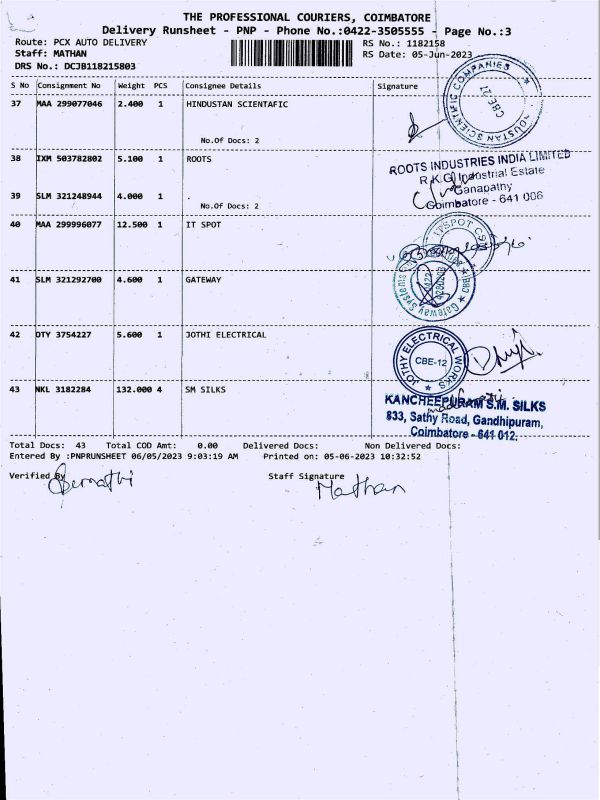 THE PROFESSIONAL COURIERS, COIMBATORE
Delivery Runsheet - PNP - Phone No.:0422-3505555 - Page No.:3
Route: PCX AUTO DELIVERY RS No.: 1182158
Staff: MATHAN RS Date: 05-Jun-2023
DRS No.: DCJB118215803
S No Consignment No Weight PCS Consignee Details Signature
37 MAA 299077046 2.400 1 HINDUSTAN SCIENTAFIC
COMPANIES
CBE-27
No.Of Docs: 2
38 IXM 503782802 5.100 1 ROOTS
ROOTS INDUSTRIES INDIA LIMITED
R.K.G. Industrial Estate
Ganapathy
Coimbatore - 641 006
39 SLM 321248944 4.000 1 .
No.Of Docs: 2
40 MAA 299996077 12.500 1 IT SPOT
ITSPOT
41 SLM 321292700 4.600 1 GATEWAY
Gateway Systems
42 DTY 3754227 5.600 1 JOTHI ELECTRICAL
JOTHY ELECTRICAL WORKS
CBE-12
43 NKL 3182284 132.000 4 SM SILKS
KANCHEEPURAM S.M. SILKS
833, Sathy Road, Gandhipuram,
Coimbatore - 641 012.
Total Docs: 43 Total COD Amt: 0.00 Delivered Docs: Non Delivered Docs:
Entered By :PNPRUNSHEET 06/05/2023 9:03:19 AM Printed on: 05-06-2023 10:32:52
Verified By Staff Signature
Mathan